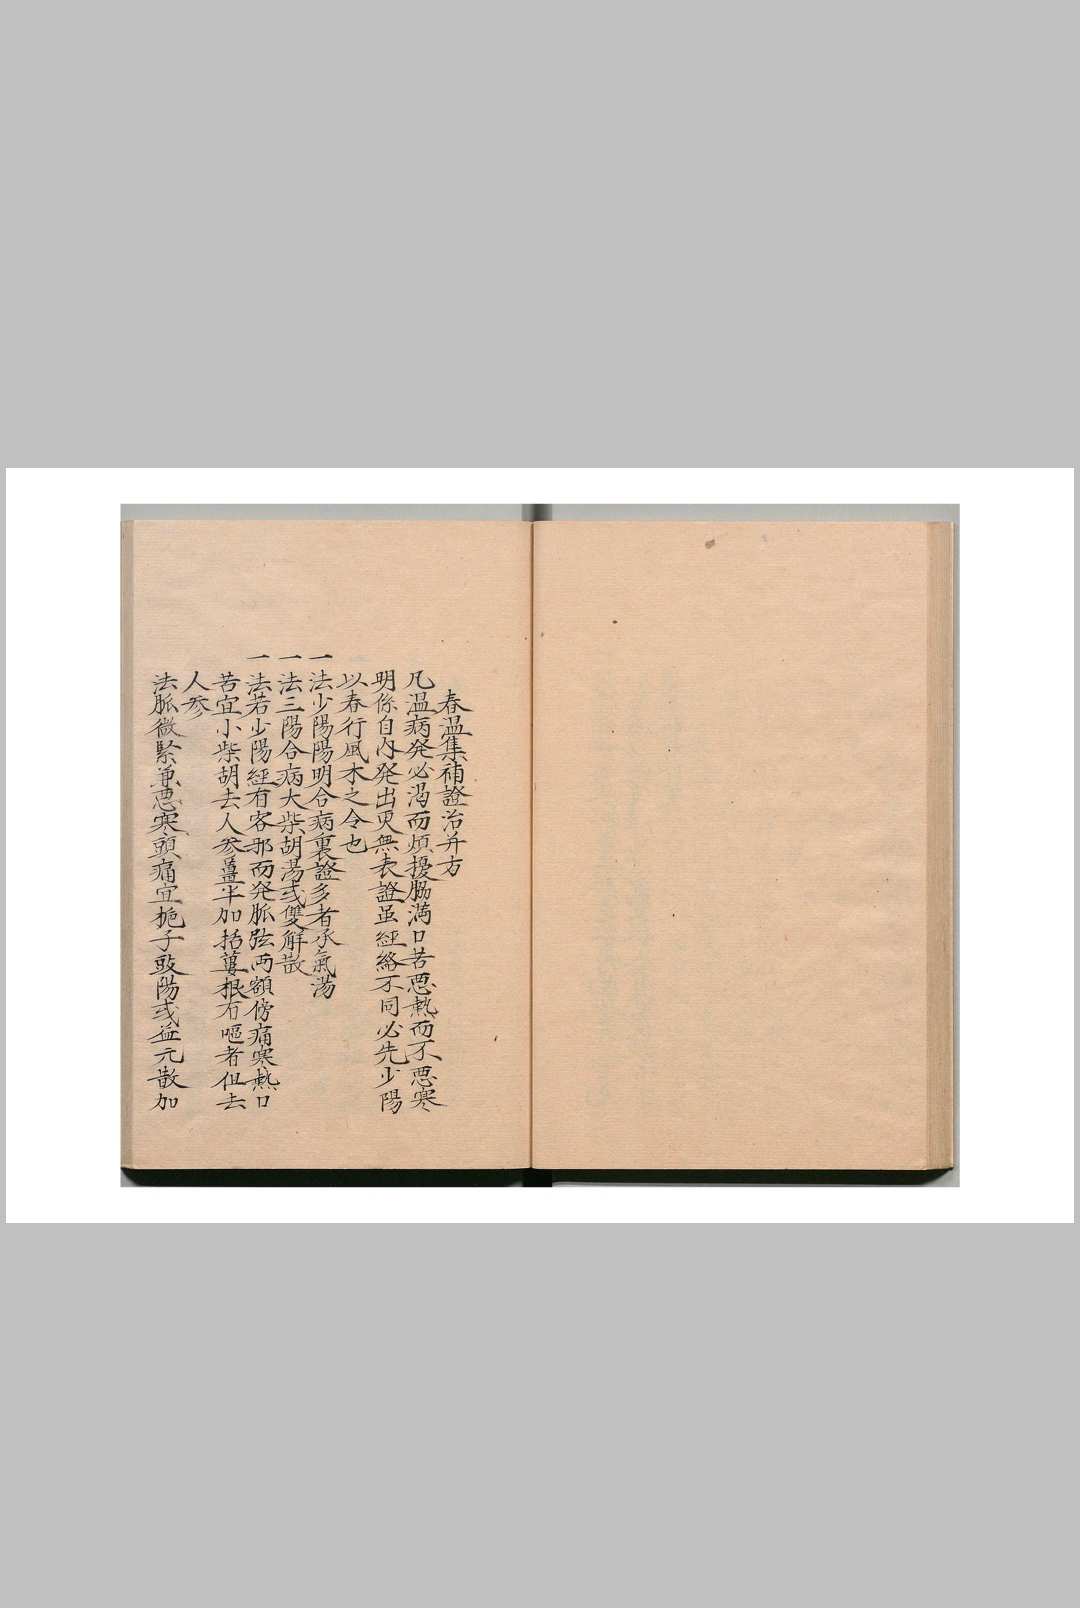 春温集補證治并方
凡温病発必渴而煩擾脇満口苦悪熱而不悪寒
明係自内発出更無表證虽経絡不同必先少陽
以春行風木之令也
一法少陽陽明合病裏證多者承氣湯
一法三陽合病大柴胡湯或雙解散
一法若少陽経有客邪而発脈弦両額傍痛寒熱口
苦宜小柴胡去人参薑半加括蔞根石嘔者但去
人参
法脈微緊兼悪寒頭痛宜梔子豉湯或益元散加